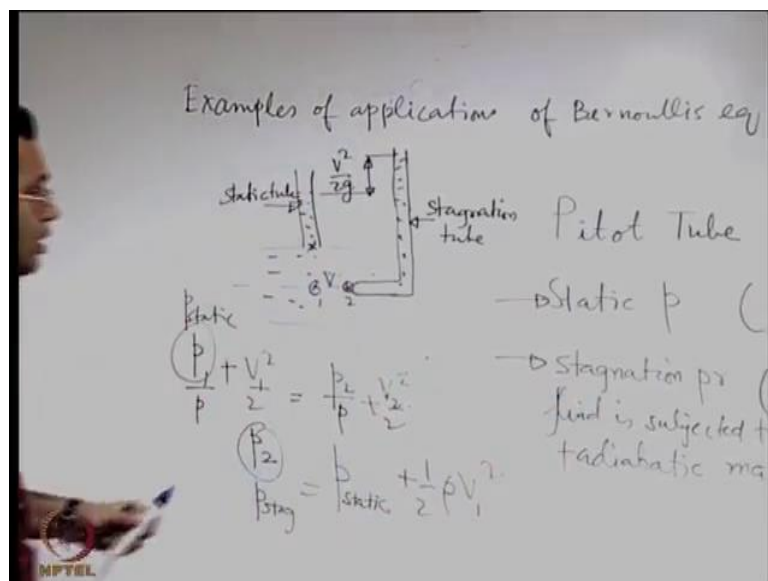 Examples of application of Bernoullis eq
V²/2g
Static tube
Stagnation
tube
Pitot Tube
V
1
2
Static p (
Stagnation pr (
is subjected t
adiabatic ma
Pstatic
p₁/ρ + V₁²/2 = p₂/ρ + V₂²/2
p₂
Pstag = Pstatic + 1/2 ρV₁²
NPTEL